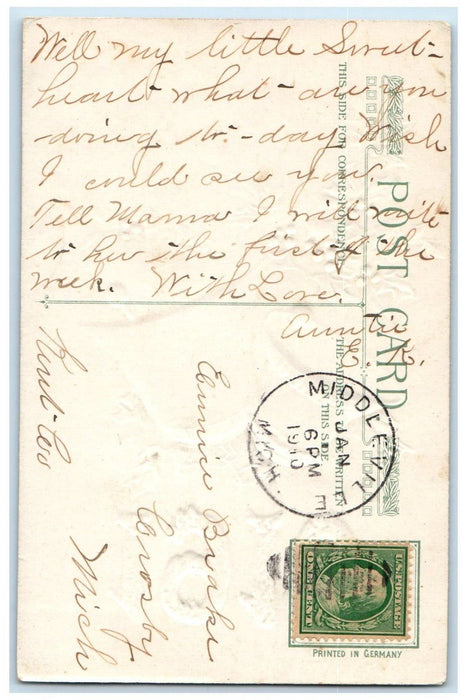 Well my little Sweet-
heart - what - are you
doing to - day Wish
I could see you.
Tell Mama I will write
to her the first of the
week. With Love.
Auntie
E. K.
POST CARD
THIS SIDE FOR CORRESPONDENCE
THE ADDRESS WRITTEN
ON THIS SIDE
MIDDLEVILLE
JAN
6PM
1910
MICH
Eunice Brake
Crosby
Mich
Kent-Co
U.S. POSTAGE
ONE CENT
PRINTED IN GERMANY